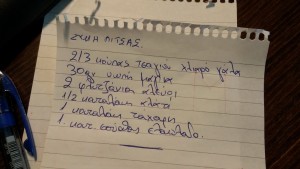 ΖΥΜΗ ΠΙΤΣΑΣ.
2/3 κούπας τσαγιού χλιαρό γάλα
30 γρ νωπή μαγιά
2 φλυτζάνια αλεύρι
1/2 κουταλάκι αλάτι
1 κουταλάκι ζάχαρη
1 κουτ. σούπας ελαιόλαδο.